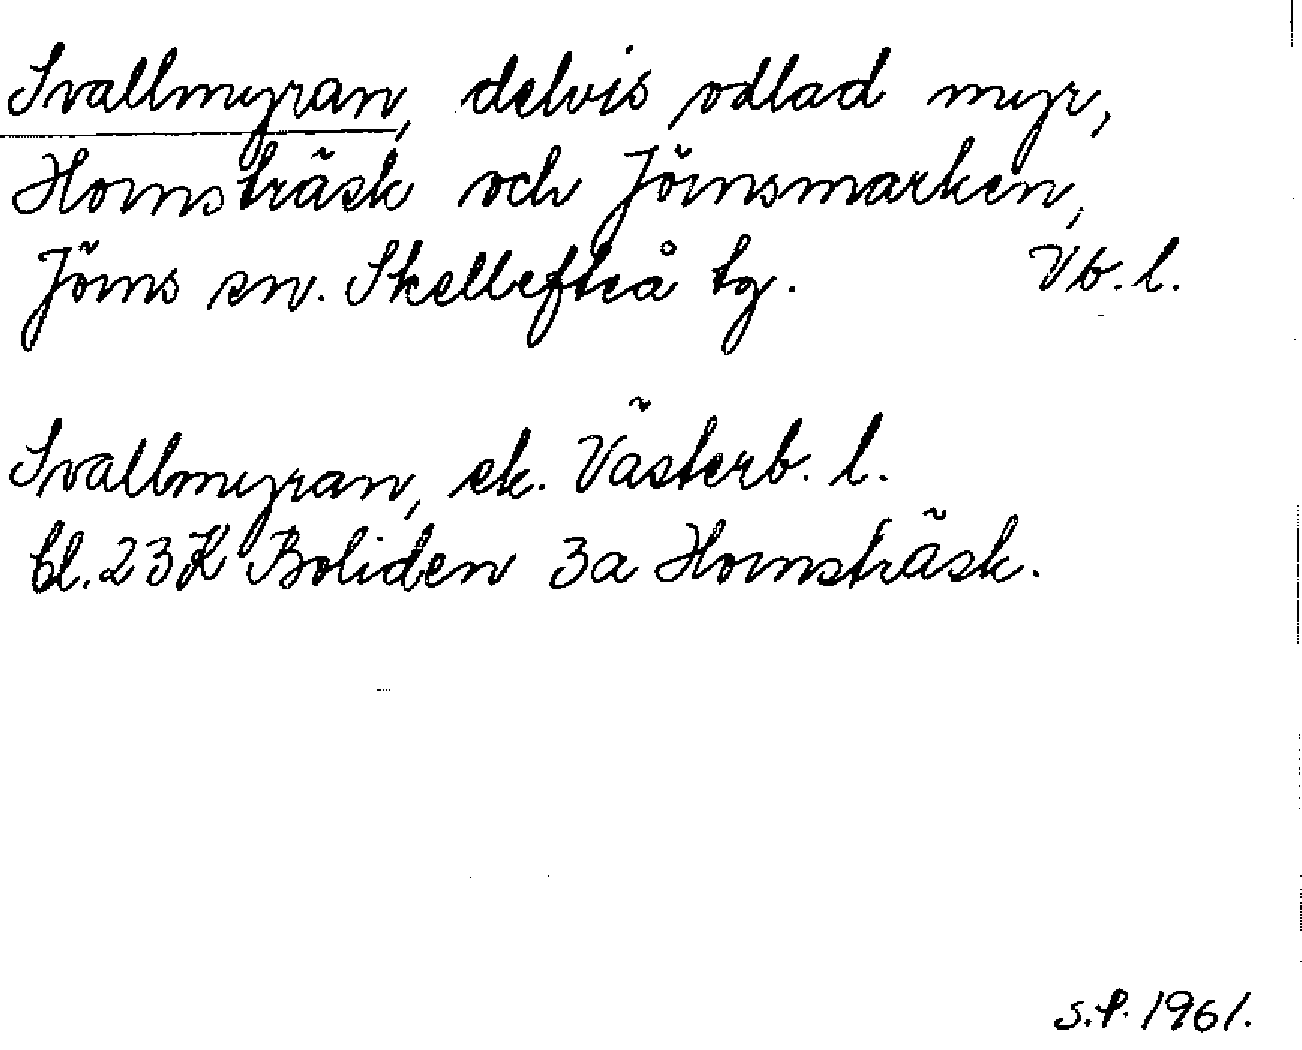 Svallmyran, delvis odlad myr,
Hornsträsk och Jörnsmarken,
Jörns sn. Skellefteå tg. Vb. l.
Svallmyran, ek. Västerb. l.
bl. 23K Boliden 3a Hornsträsk.
S.P. 1961.